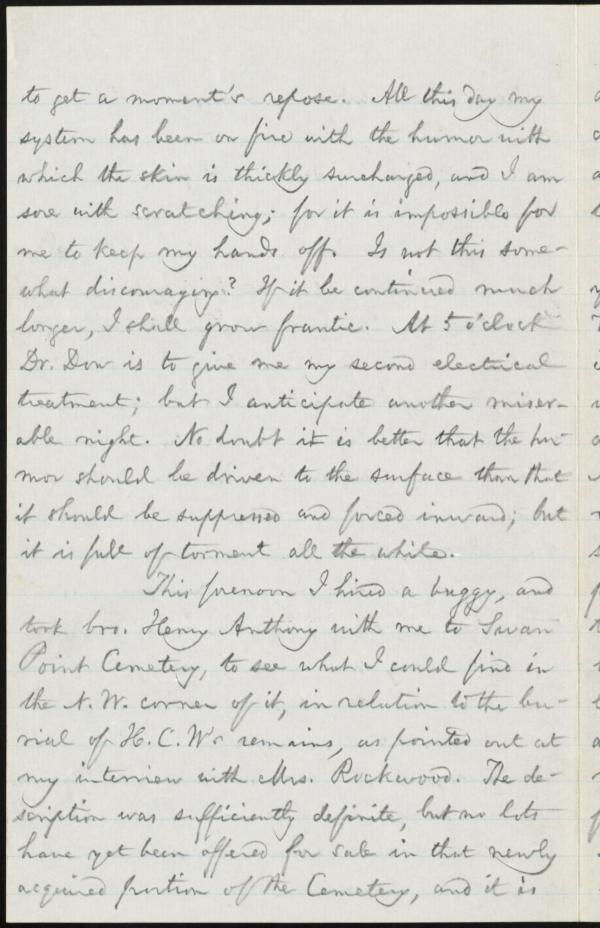 to get a moment's repose. All this day my
system has been on fire with the humor with
which the skin is thickly surcharged, and I am
sore with scratching; for it is impossible for
me to keep my hands off. Is not this some-
what discouraging? If it be continued much
longer, I shall grow frantic. At 5 o'clock
Dr. Dow is to give me my second electrical
treatment; but I anticipate another miser-
able night. No doubt it is better that the hu-
mor should be driven to the surface than that
it should be suppressed and forced inward; but
it is full of torment all the while.
This forenoon I hired a buggy, and
took bro. Henry Anthony with me to Swan
Point Cemetery, to see what I could find in
the N.W. corner of it, in relation to the bu-
rial of H.C.W's remains, as pointed out at
my interview with Mrs. Rockwood. The de-
scription was sufficiently definite, but no lots
have yet been offered for sale in that newly
acquired portion of the Cemetery, and it is